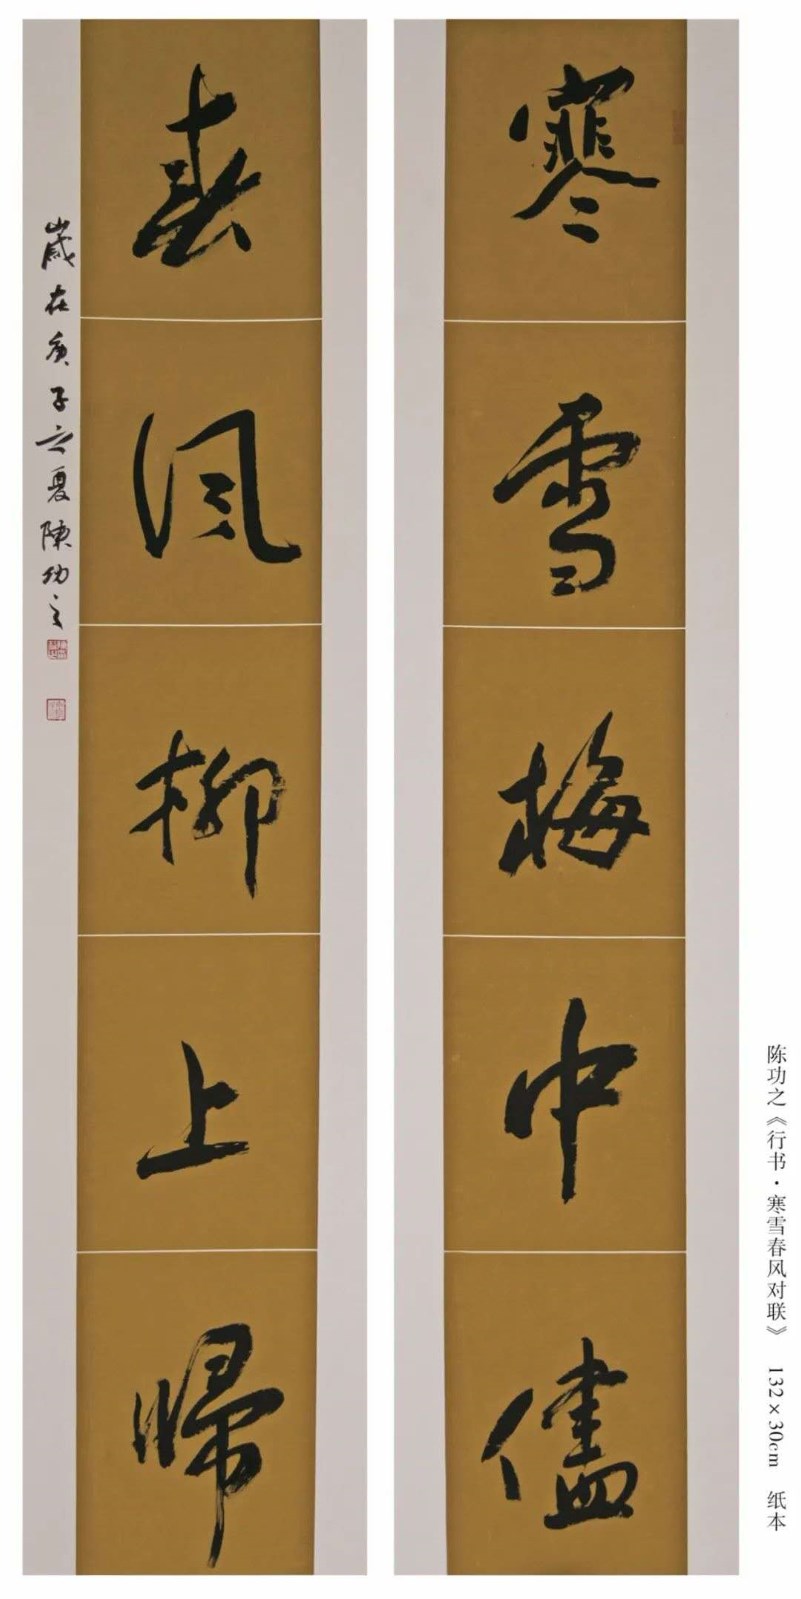 寒雪梅中儘
春風柳上歸
歲在庚子立夏陳功之
陈功之《行书·寒雪春风对联》 132×30cm 纸本